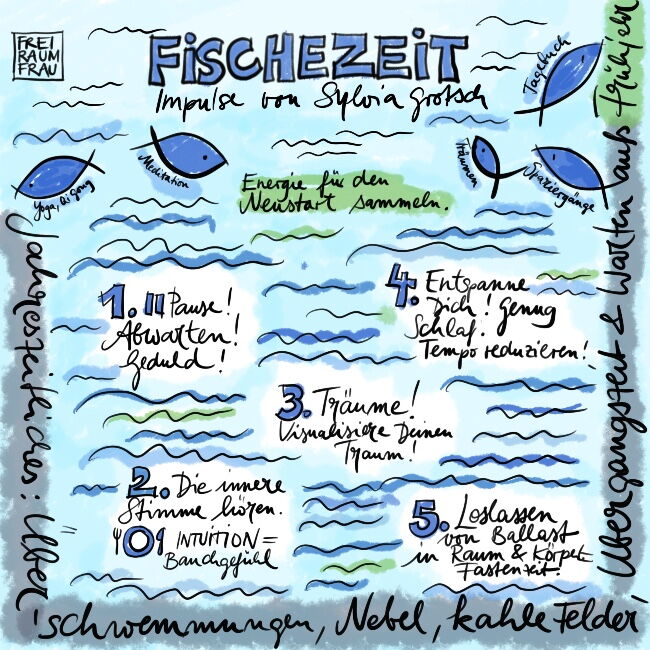 FREI
RAUM
FRAU
FiSCHEZEiT
Impulse von Sylvia Grotsch
Tagebuch
Yoga, Qi gong
Meditation
Träumen
Spaziergänge
Energie für den
Neustart sammeln.
1. Pause!
Abwarten!
Geduld!
4. Entspanne
Dich! Genug
Schlaf.
Tempo reduzieren!
3. Träume!
Visualisiere Deinen
Traum!
2. Die innere
Stimme hören.
INTUITION =
Bauchgefühl
5. Loslassen
von Ballast
in Raum & Körper
Fastenzeit.
Jahreszeitliches: Über-
schwemmungen, Nebel, kahle Felder,
Übergangszeit & Warten aufs Frühjahr